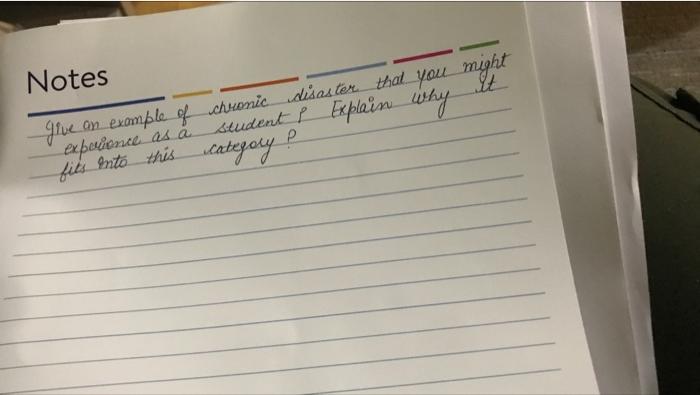 Notes
Give an example of chronic disaster that you might
experience as a student? Explain why it
fits into this category?